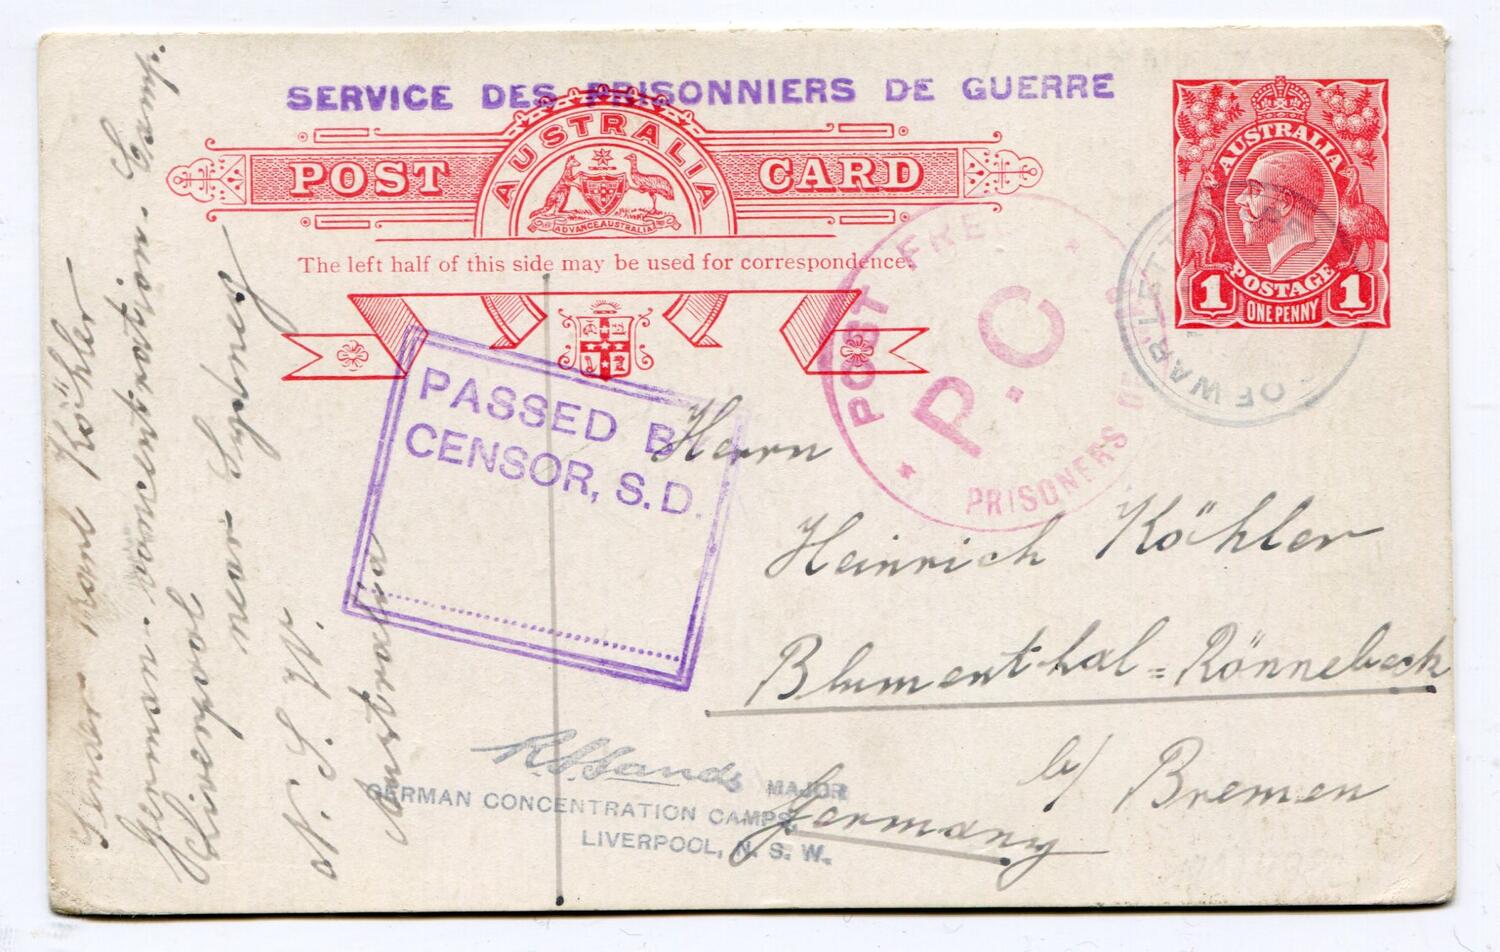 SERVICE DES PRISONNIERS DE GUERRE
POST AUSTRALIA CARD
ADVANCE AUSTRALIA
The left half of this side may be used for correspondence.
AUSTRALIA
POSTAGE
1 ONE PENNY 1
POST FREE
P.C.
PRISONERS OF
OF WAR LETT
PASSED BY
CENSOR, S.D.
Herrn
Heinrich Köhler
Blumenthal=Rönnebeck
b/ Bremen
Germany
Sender Karl Köhler
German-concentration-Camp.
Liverpool
near Sydney
N. S. W.
Australia
R.S. Sands MAJOR
GERMAN CONCENTRATION CAMPS,
LIVERPOOL, N. S. W.